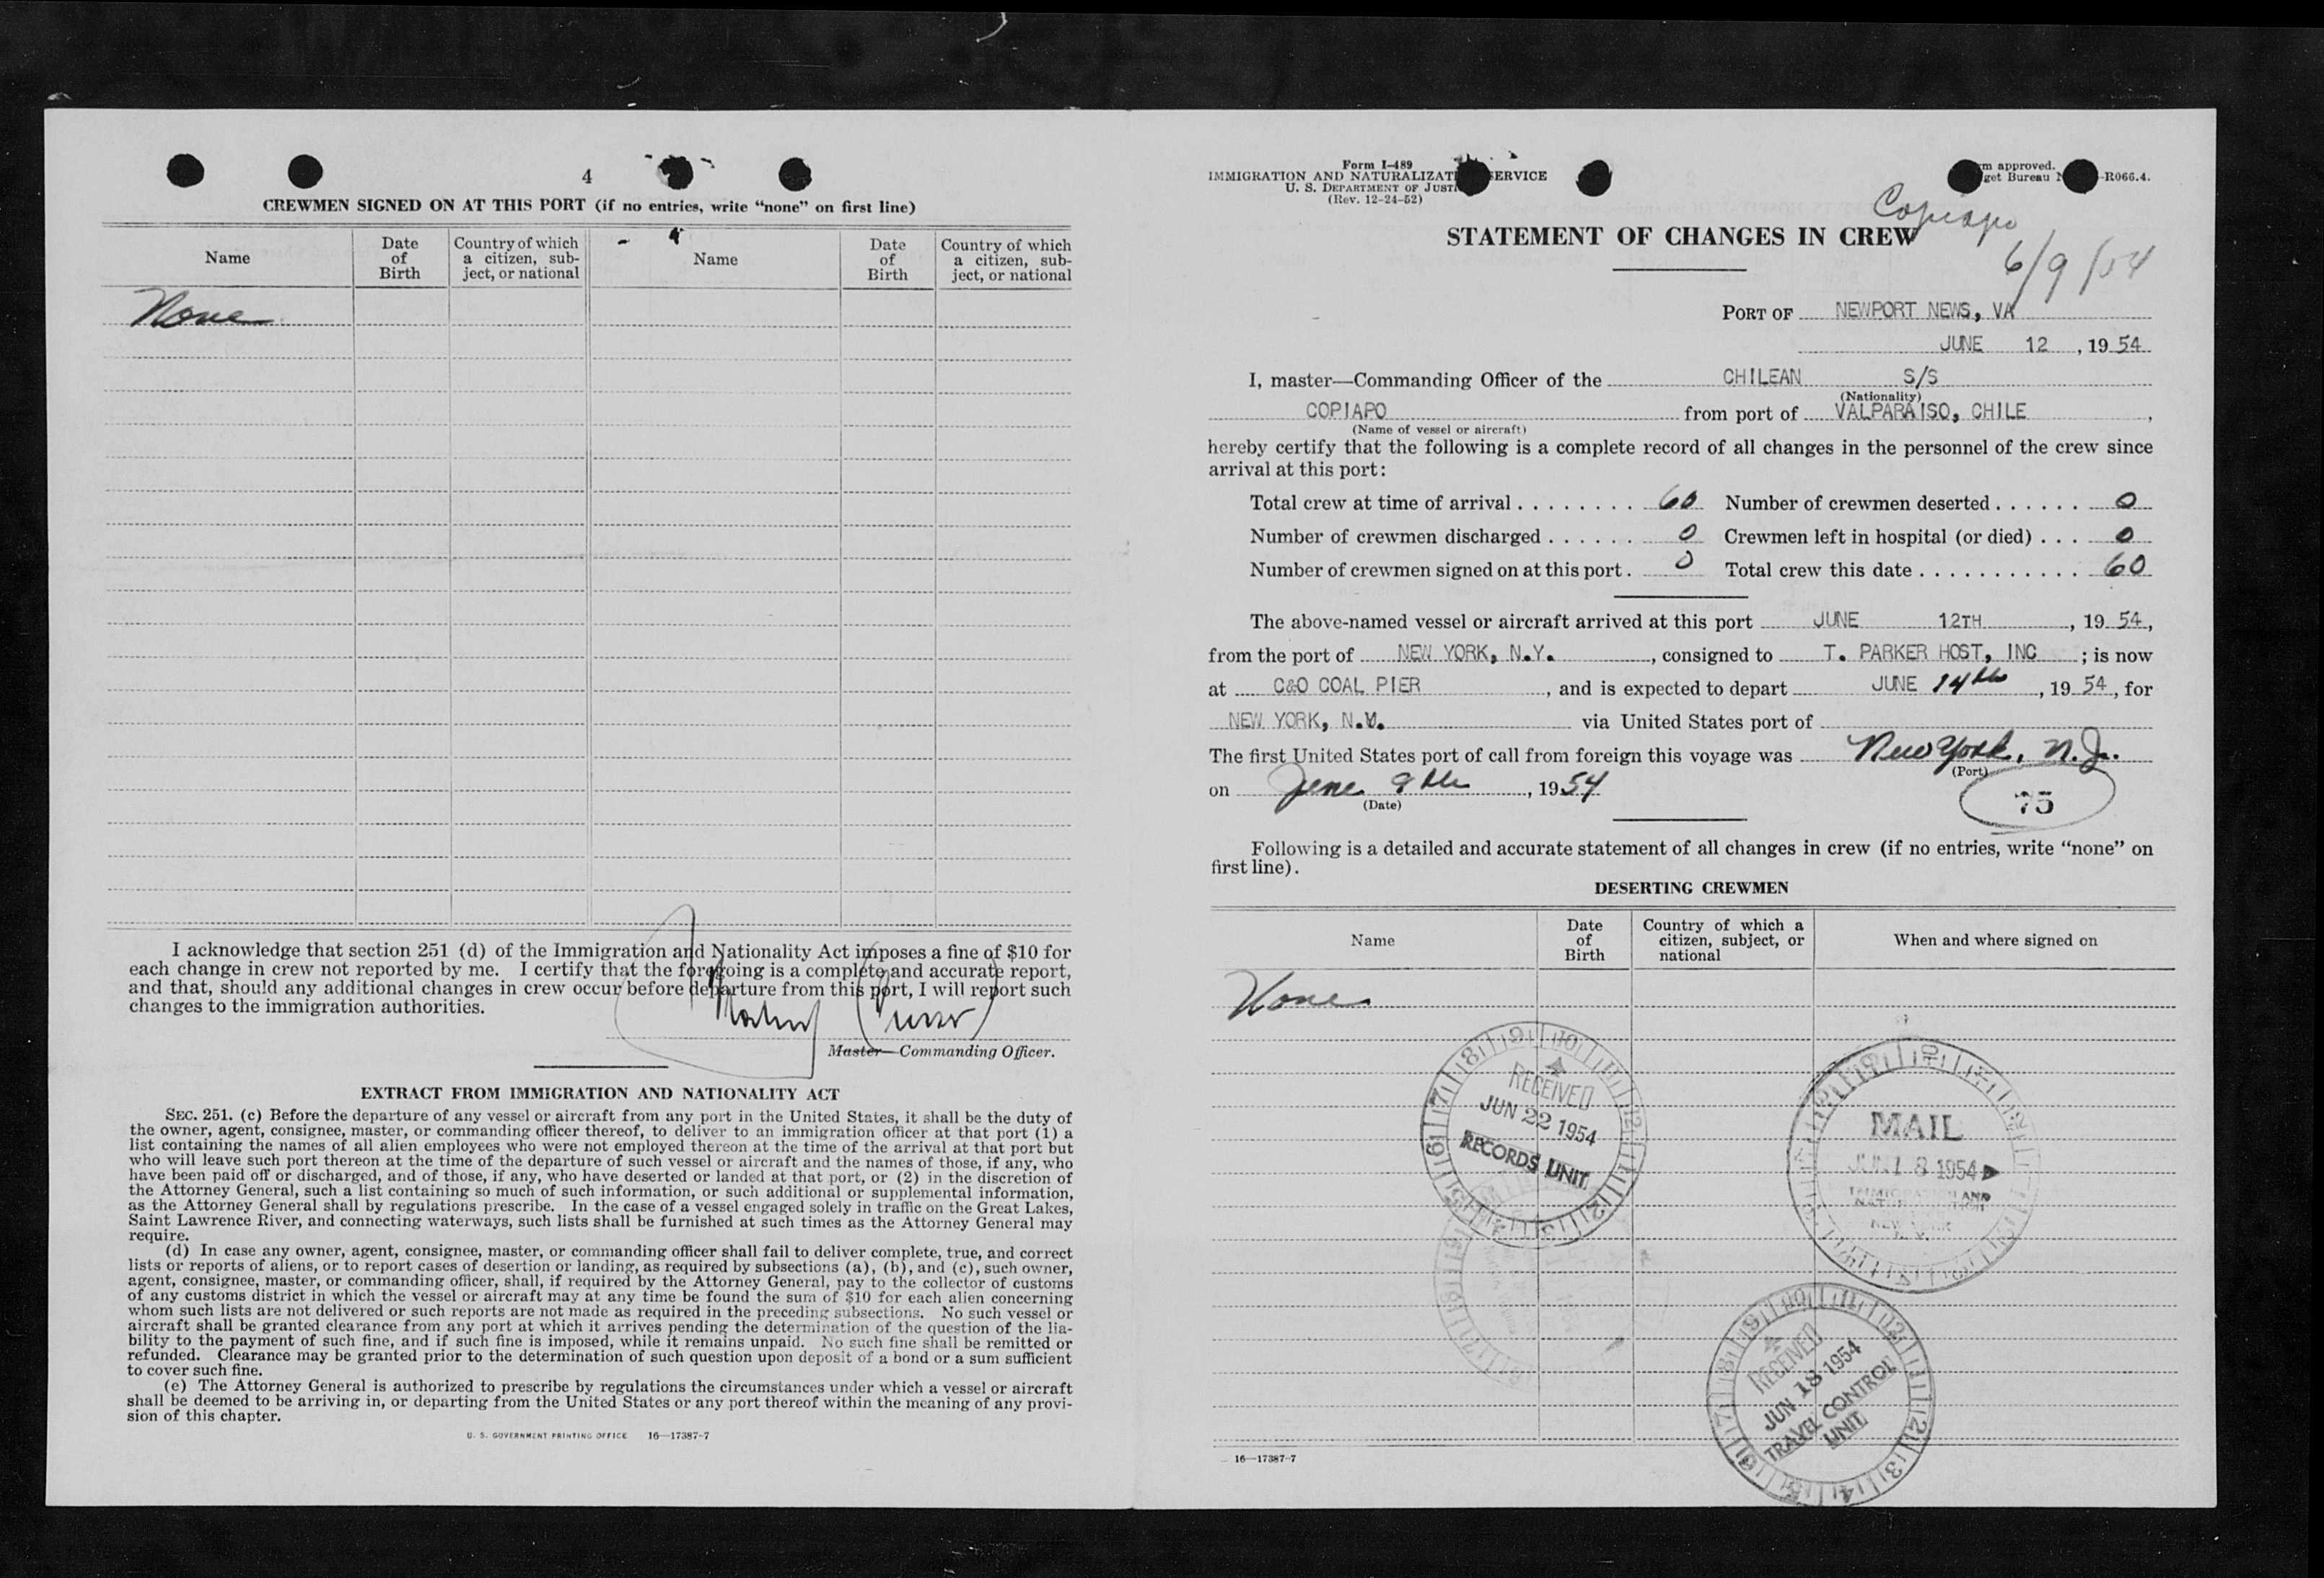 4
CREWMEN SIGNED ON AT THIS PORT (if no entries, write “none” on first line)
Name Date of Birth Country of which a citizen, subject, or national Name Date of Birth Country of which a citizen, subject, or national
None
I acknowledge that section 251 (d) of the Immigration and Nationality Act imposes a fine of $10 for
each change in crew not reported by me. I certify that the foregoing is a complete and accurate report,
and that, should any additional changes in crew occur before departure from this port, I will report such
changes to the immigration authorities.
Master—Commanding Officer.
EXTRACT FROM IMMIGRATION AND NATIONALITY ACT
SEC. 251. (c) Before the departure of any vessel or aircraft from any port in the United States, it shall be the duty of
the owner, agent, consignee, master, or commanding officer thereof, to deliver to an immigration officer at that port (1) a
list containing the names of all alien employees who were not employed thereon at the time of the arrival at that port but
who will leave such port thereon at the time of the departure of such vessel or aircraft and the names of those, if any, who
have been paid off or discharged, and of those, if any, who have deserted or landed at that port, or (2) in the discretion of
the Attorney General, such a list containing so much of such information, or such additional or supplemental information,
as the Attorney General shall by regulations prescribe. In the case of a vessel engaged solely in traffic on the Great Lakes,
Saint Lawrence River, and connecting waterways, such lists shall be furnished at such times as the Attorney General may
require.
(d) In case any owner, agent, consignee, master, or commanding officer shall fail to deliver complete, true, and correct
lists or reports of aliens, or to report cases of desertion or landing, as required by subsections (a), (b), and (c), such owner,
agent, consignee, master, or commanding officer, shall, if required by the Attorney General, pay to the collector of customs
of any customs district in which the vessel or aircraft may at any time be found the sum of $10 for each alien concerning
whom such lists are not delivered or such reports are not made as required in the preceding subsections. No such vessel or
aircraft shall be granted clearance from any port at which it arrives pending the determination of the question of the lia-
bility to the payment of such fine, and if such fine is imposed, while it remains unpaid. No such fine shall be remitted or
refunded. Clearance may be granted prior to the determination of such question upon deposit of a bond or a sum sufficient
to cover such fine.
(e) The Attorney General is authorized to prescribe by regulations the circumstances under which a vessel or aircraft
shall be deemed to be arriving in, or departing from the United States or any port thereof within the meaning of any provi-
sion of this chapter.
U. S. GOVERNMENT PRINTING OFFICE 16—17387-7
Form I-489
IMMIGRATION AND NATURALIZAT ERVICE
U. S. DEPARTMENT OF JUSTI
(Rev. 12-24-52)
m approved.
get Bureau N -R066.4.
Copiapo
STATEMENT OF CHANGES IN CREW
6/9/54
PORT OF NEWPORT NEWS, VA
JUNE 12, 1954
I, master—Commanding Officer of the CHILEAN S/S
(Nationality)
COPIAPO from port of VALPARAISO, CHILE,
(Name of vessel or aircraft)
hereby certify that the following is a complete record of all changes in the personnel of the crew since
arrival at this port:
Total crew at time of arrival . . . . . . . . 60 Number of crewmen deserted . . . . . . 0
Number of crewmen discharged . . . . . . 0 Crewmen left in hospital (or died) . . . 0
Number of crewmen signed on at this port . 0 Total crew this date . . . . . . . . . . . 60
The above-named vessel or aircraft arrived at this port JUNE 12TH, 1954,
from the port of NEW YORK, N.Y., consigned to T. PARKER HOST, INC; is now
at C&O COAL PIER, and is expected to depart JUNE 14th, 1954, for
NEW YORK, N.Y. via United States port of
The first United States port of call from foreign this voyage was New York, N.J.
(Port)
on June 9th, 1954
(Date)
75
Following is a detailed and accurate statement of all changes in crew (if no entries, write “none” on
first line).
DESERTING CREWMEN
Name Date of Birth Country of which a citizen, subject, or national When and where signed on
None
RECEIVED
JUN 22 1954
RECORDS UNIT
MAIL
JUN 18 1954
IMMIGRATION AND
RECEIVED
JUN 18 1954
TRAVEL CONTROL
UNIT
16—17387-7